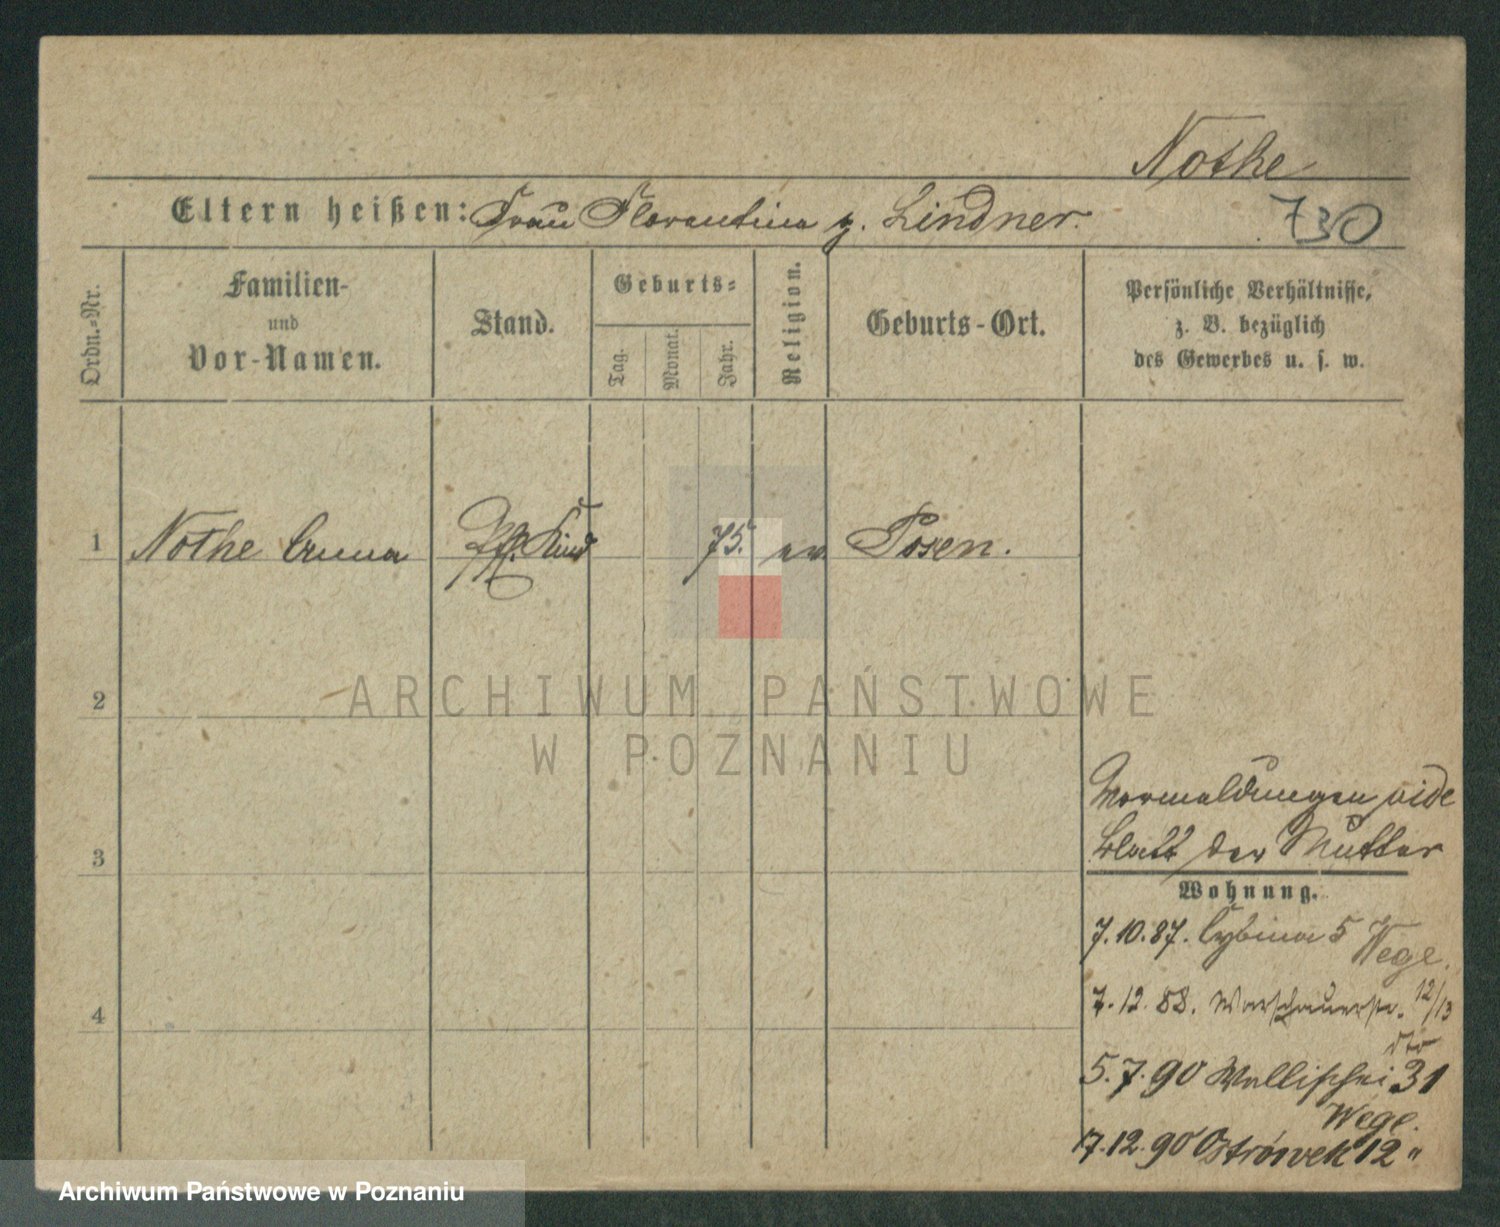 Nothe
Eltern heißen: Frau Florentina g. Lindner.
730
Ordn.-Nr.
Familien-
und
Vor-Namen.
Stand.
Geburts-
Tag.
Monat.
Jahr.
Religion.
Geburts-Ort.
Persönliche Verhältnisse,
z. B. bezüglich
des Gewerbes u. s. w.
1 Nothe Anna Kind 75. ev Posen.
2
ARCHIWUM PAŃSTWOWE
W POZNANIU
Vormeldungen vide
Blatt der Mutter
3
Wohnung.
7.10.87. Cybina 5
Wege.
7.12.88. Warschauerstr. 12/13
4
dto
5.7.90 Wallischei 31
Wege.
17.12.90 Ostrówek 12 "
Archiwum Państwowe w Poznaniu